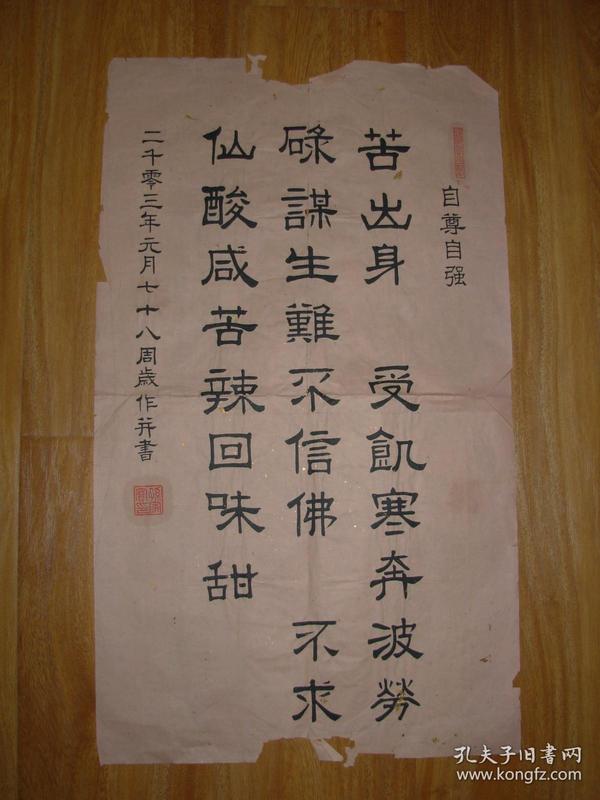 自尊自强
苦出身 受飢寒奔波勞
碌謀生難不信佛 不求
仙酸咸苦辣回味甜
二千零三年元月七十八周歲作并書
孔夫子旧书网
www.kongfz.com